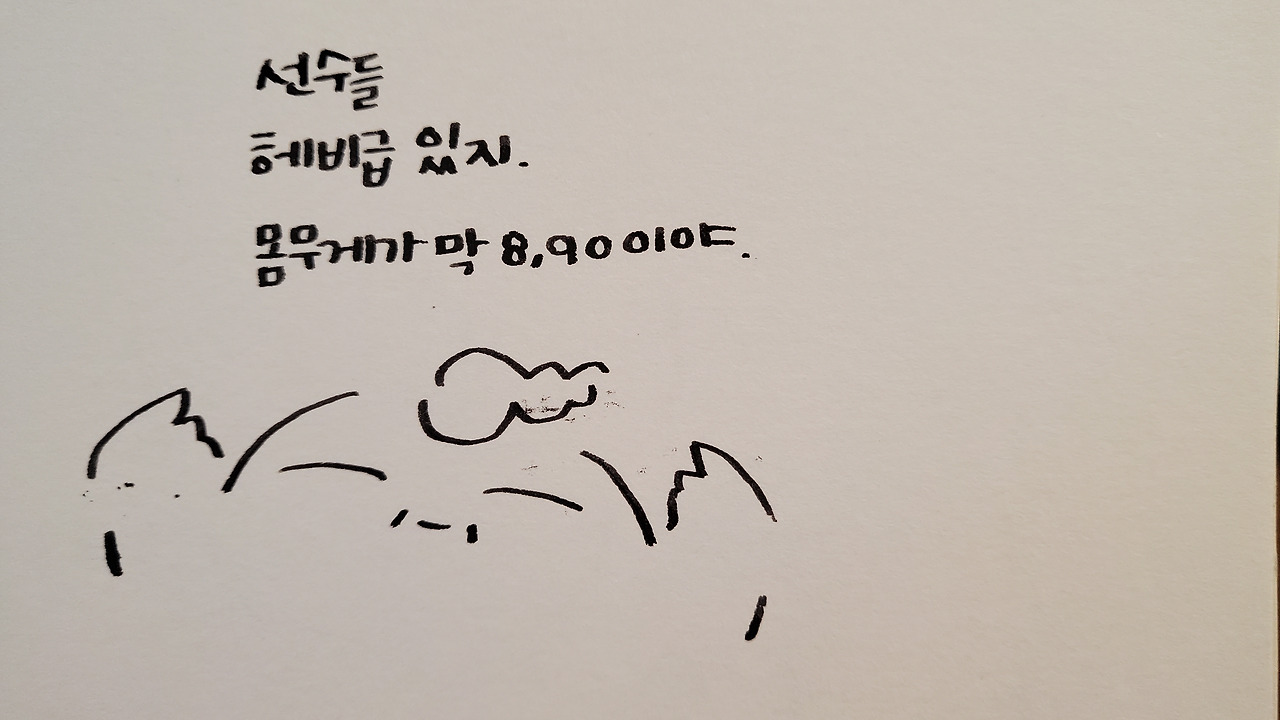 선수들
헤비급 있지.
몸무게가 막 8,90이야.